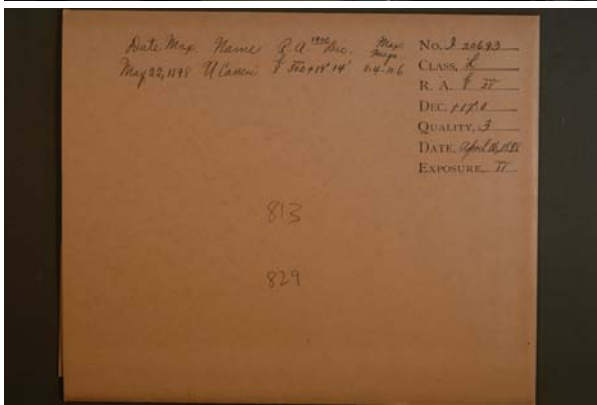 Date Max. Name R.A. 1900 Dec. Max. Magn.
May 22, 1898 U Cancri 8h 30.0 +19° 14'
No. I 20693
CLASS, L
R. A. 8
DEC. +19.0
QUALITY, 3
DATE, April 18, 1898
EXPOSURE, 11
813
829